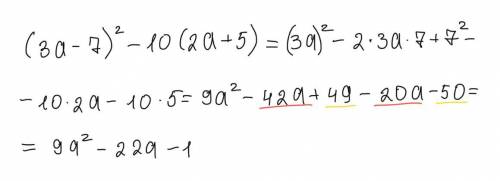 (3a - 7)² - 10(2a + 5) = (3a)² - 2·3a·7 + 7² -
- 10·2a - 10·5 = 9a² - 42a + 49 - 20a - 50 =
= 9a² - 22a - 1